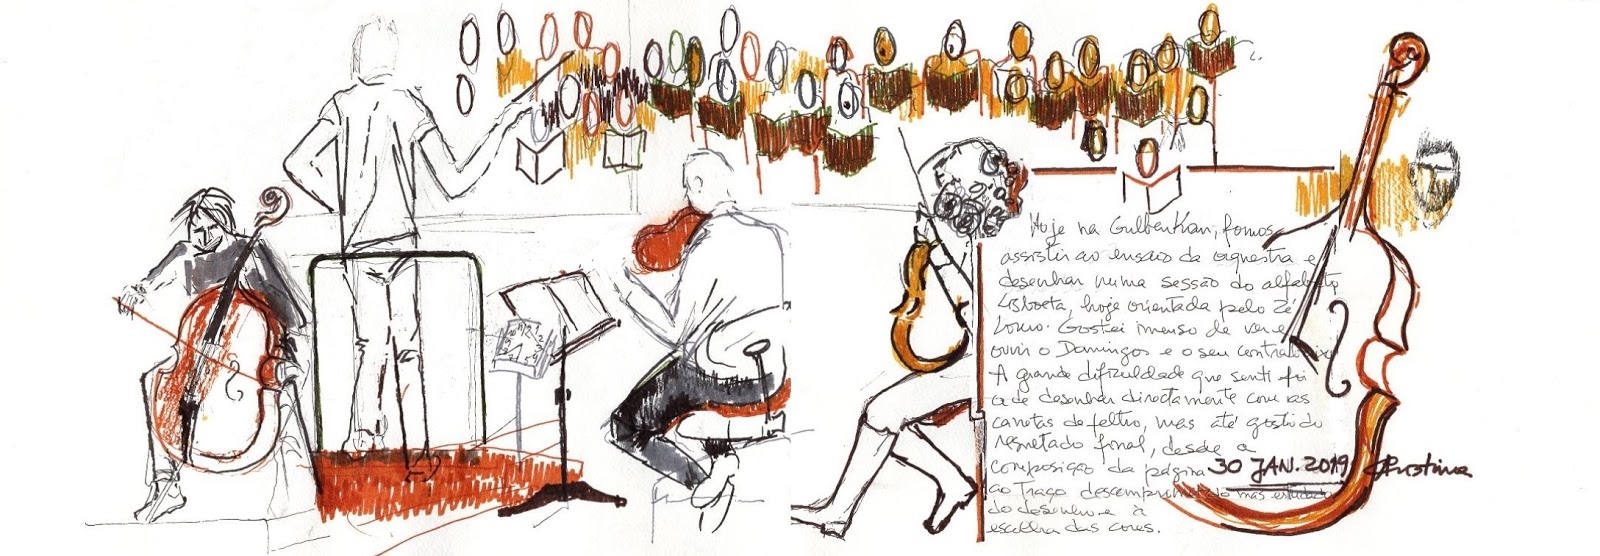 Hoje na Gulbenkian, fomos
assistir ao ensaio da orquestra e
desenhar numa sessão do alfabeto
Lisboeta, hoje orientada pelo Zé
Louro. Gostei imenso de ver e
ouvir o Domingos e o seu contrabaixo
A grande dificuldade que senti foi
a de desenhar directamente com as
canetas de feltro, mas até gosto do
resultado final, desde a
composição da página
ao traço descomprometido mas estudado
do desenho e à
escolha das cores.
30 JAN. 2019 Cristina